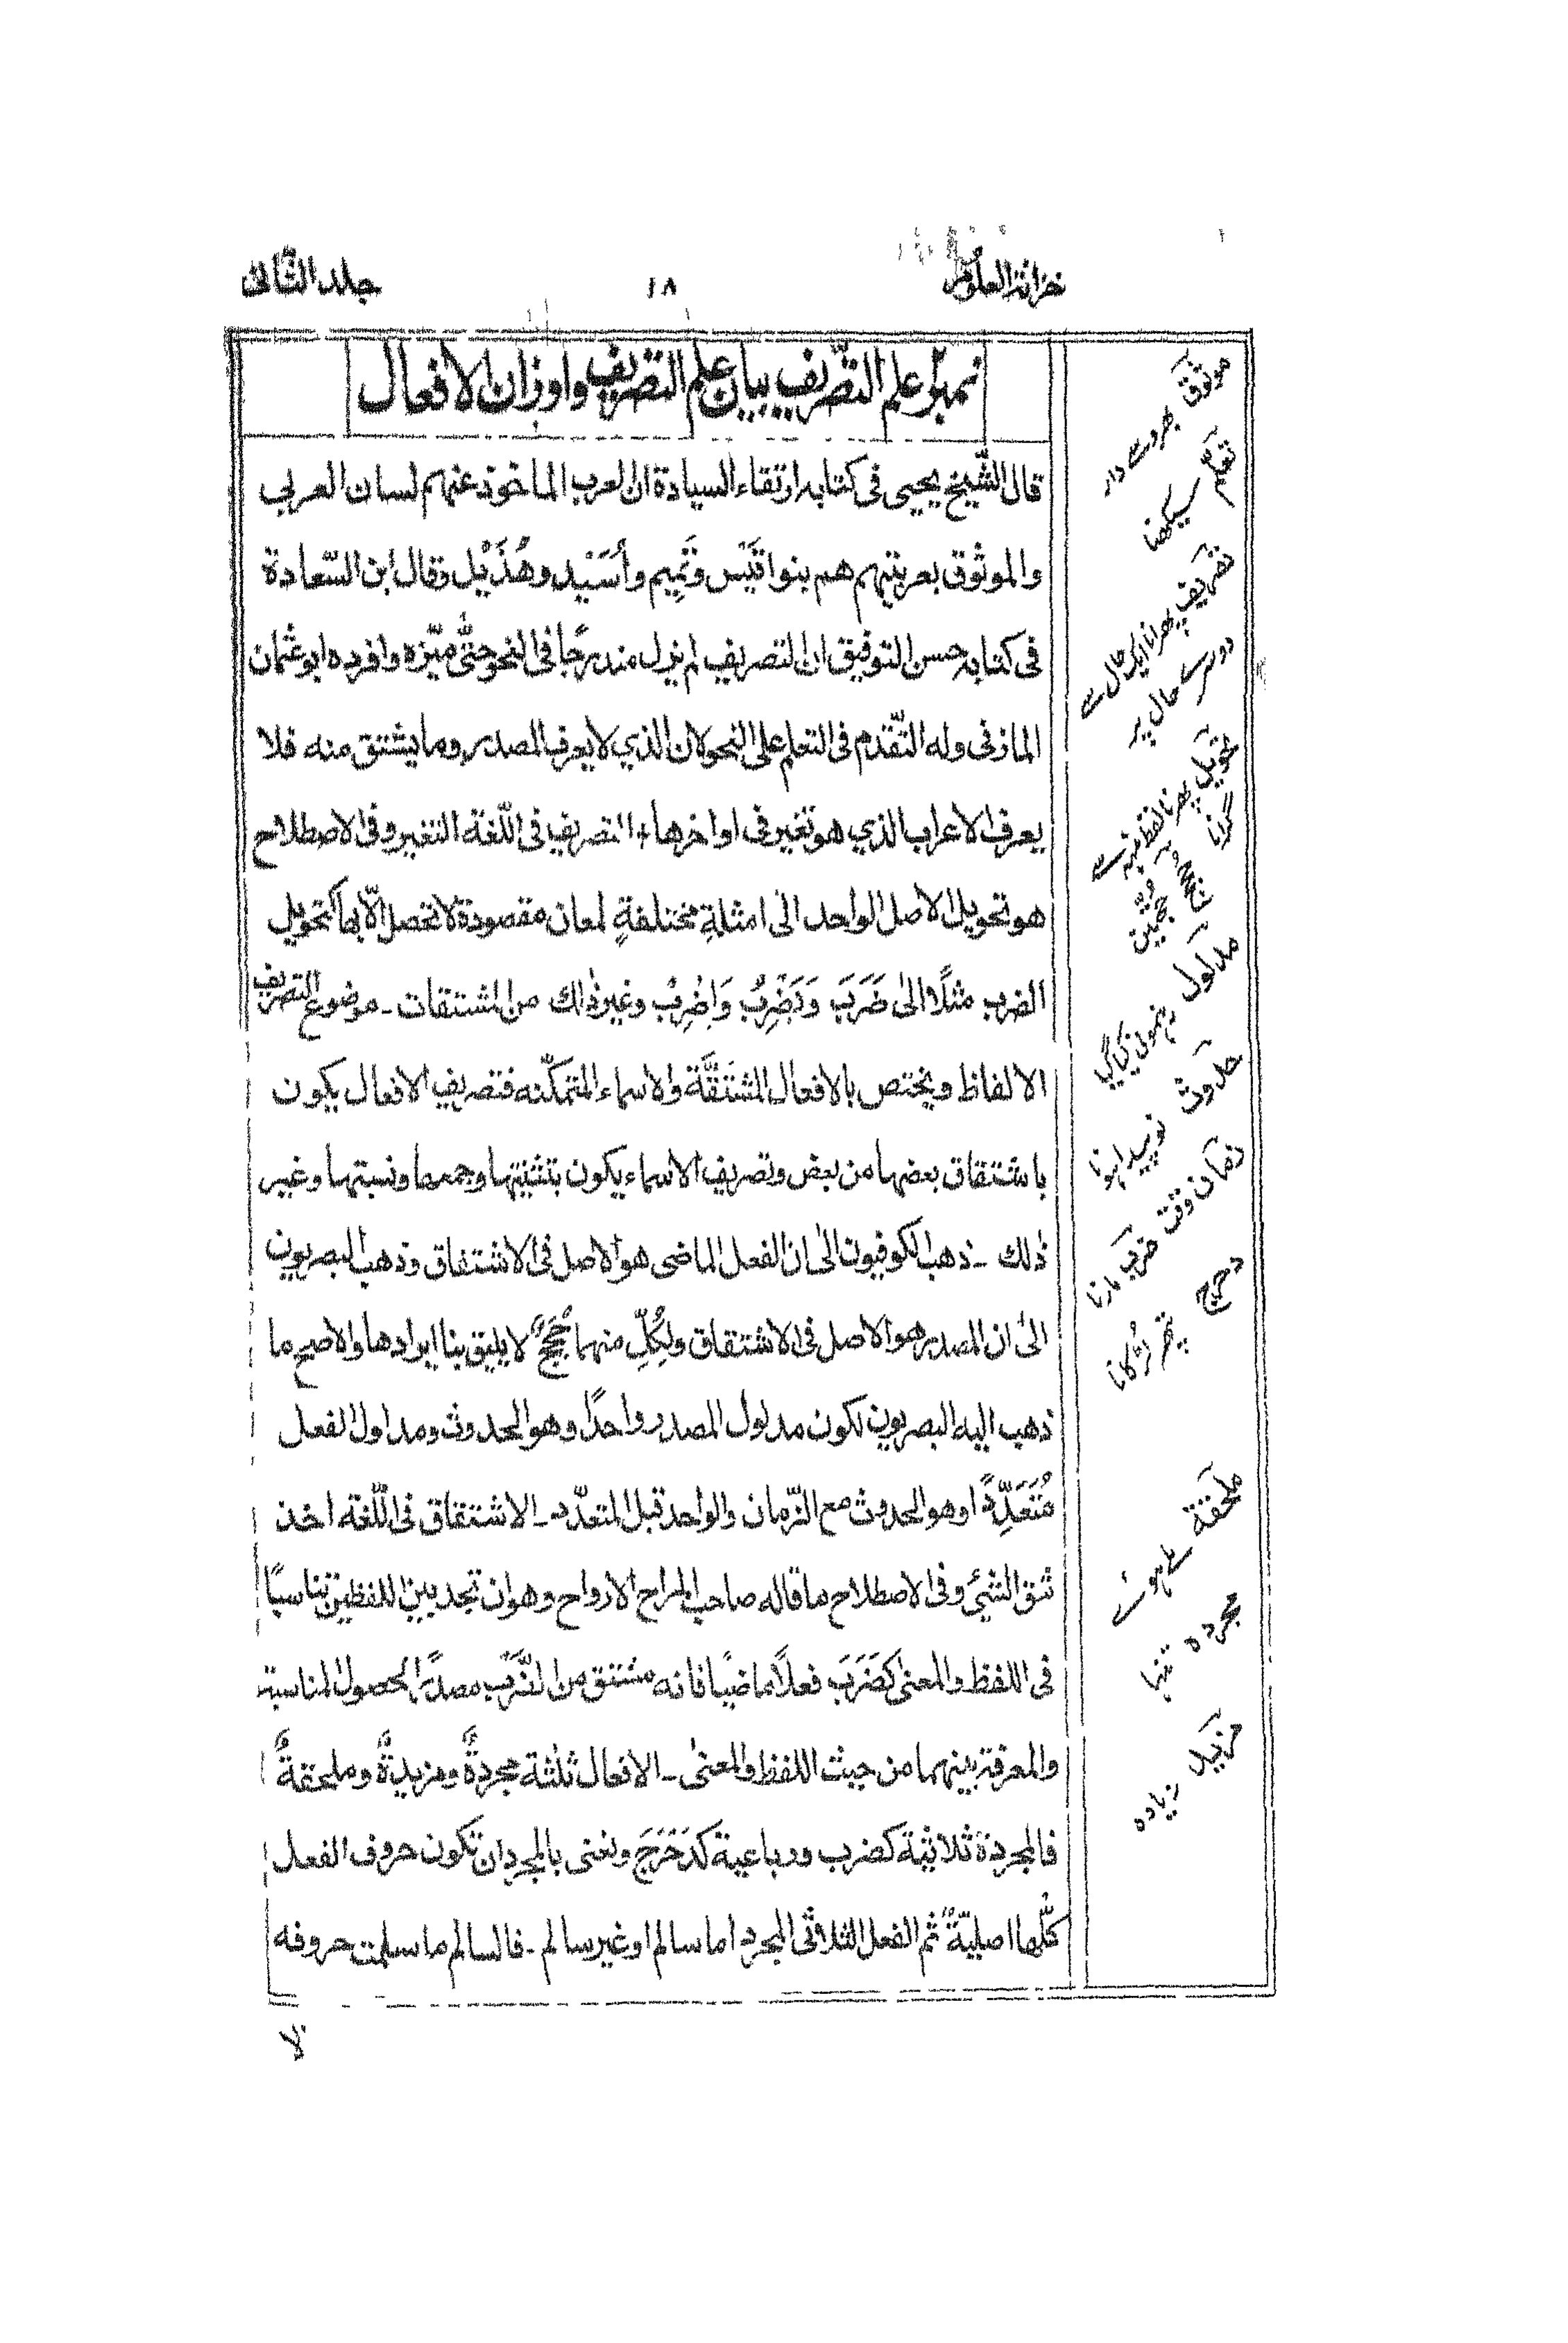 خزانة العلوم
١٨
جلد الثانى
نمبر٢ علم التصّريف بيان علم التصريف واوزان الافعال
قال الشّيخ يحيى فى كتابه ارتقاء السيادة ان العرب الماخوذ عنهم لسان العربي
والموثوق بعربيتهم هم بنوا قَيْس وتَمِيم وأُسَيْد وهُذَيْل وقال ابن السّعادة
فى كتابه حسن التوفيق ان التصريف لم يزل مندرجًا فى النحو حتّٰى ميّزه وافرده ابو عثمان
المازنى وله التّقدم فى التعلم على النحو لان الذي لا يعرف المصدر وما يشتق منه فلا
يعرف الاعراب الذي هو تغير فى اواخرها + التصريف فى اللّغة التغير وفى الاصطلاح
هو تحويل الاصل الواحد الى امثلةٍ مختلفةٍ لمعان مقصودة لا تحصل الّا بها كتحويل
الضرب مثلًا الى ضَرَبَ وَيَضْرِبُ وَاضْرِبْ وغير ذٰلك من المشتقات ـ موضوع التصريف
الالفاظ ويختص بالافعال المشتَقَّة والاسماء المتمكّنه فتصريف الافعال يكون
باشتقاق بعضها من بعض وتصريف الاسماء يكون بتثنيتها وجمعها ونسبتها وغير
ذٰلك ـ ذهب الكوفيون الى ان الفعل الماضى هو الاصل فى الاشتقاق وذهب البصريون
الى ان المصدر هو الاصل فى الاشتقاق ولِكُلٍّ منهما حُجَجٌ لا يليق بنا ايرادها والاصح ما
ذهب اليه البصريون لكون مدلول المصدر واحدًا وهو الحدوث ومدلول الفعل
مُتَعَدِّدًا وهو الحدوث مع الزّمان والواحد قبل المتعدّد ـ الاشتقاق فى اللّغة اخذ
شق الشئى وفى الاصطلاح ما قاله صاحب المراح الارواح وهو ان تجد بين اللفظين تناسبًا
فى اللفظ والمعنى كضَرَبَ فعلًا ماضيًا فانه مشتق من الضَّرْبِ مصدرًا لحصول المناسبة
والمعرفة بينهما من حيث اللفظ والمعنى ـ الافعال ثلٰثة مجردةٌ ومزيدةٌ وملحقةٌ
فالمجردة ثلاثية كضرب ورباعية كدَحْرَجَ ونعنى بالمجرد ان تكون حروف الفعل
كلّها اصليّةٌ ثم الفعل الثلاثى المجرد اما سالم او غير سالم ـ فالسالم ما سلمت حروفه
لا
موثوق بھروسے دار
تعلّم سیکھنا
تصریف پھرانا ایک حال سے
دوسرے حال پر
تحویل پھرنا لفظ
حجج حجتیں
مدلول
حدوث نو پیدا ہونا
زمان وقت ضرب مارنا
دحرج پتھر لڑکانا
ملحقة ملے ہوئے
مجرده تنہا
مزید زیاده